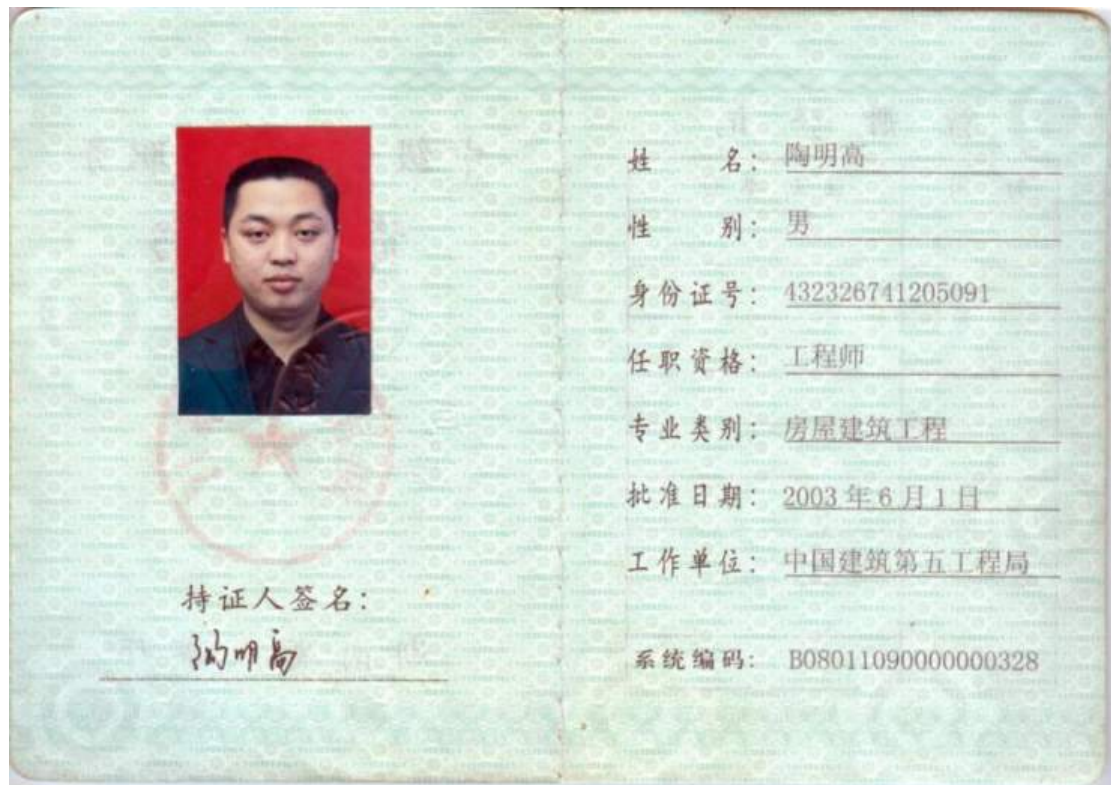 持证人签名:
陶明高
姓 名: 陶明高
性 别: 男
身份证号: 432326741205091
任职资格: 工程师
专业类别: 房屋建筑工程
批准日期: 2003年6月1日
工作单位: 中国建筑第五工程局
系统编码: B08011090000000328